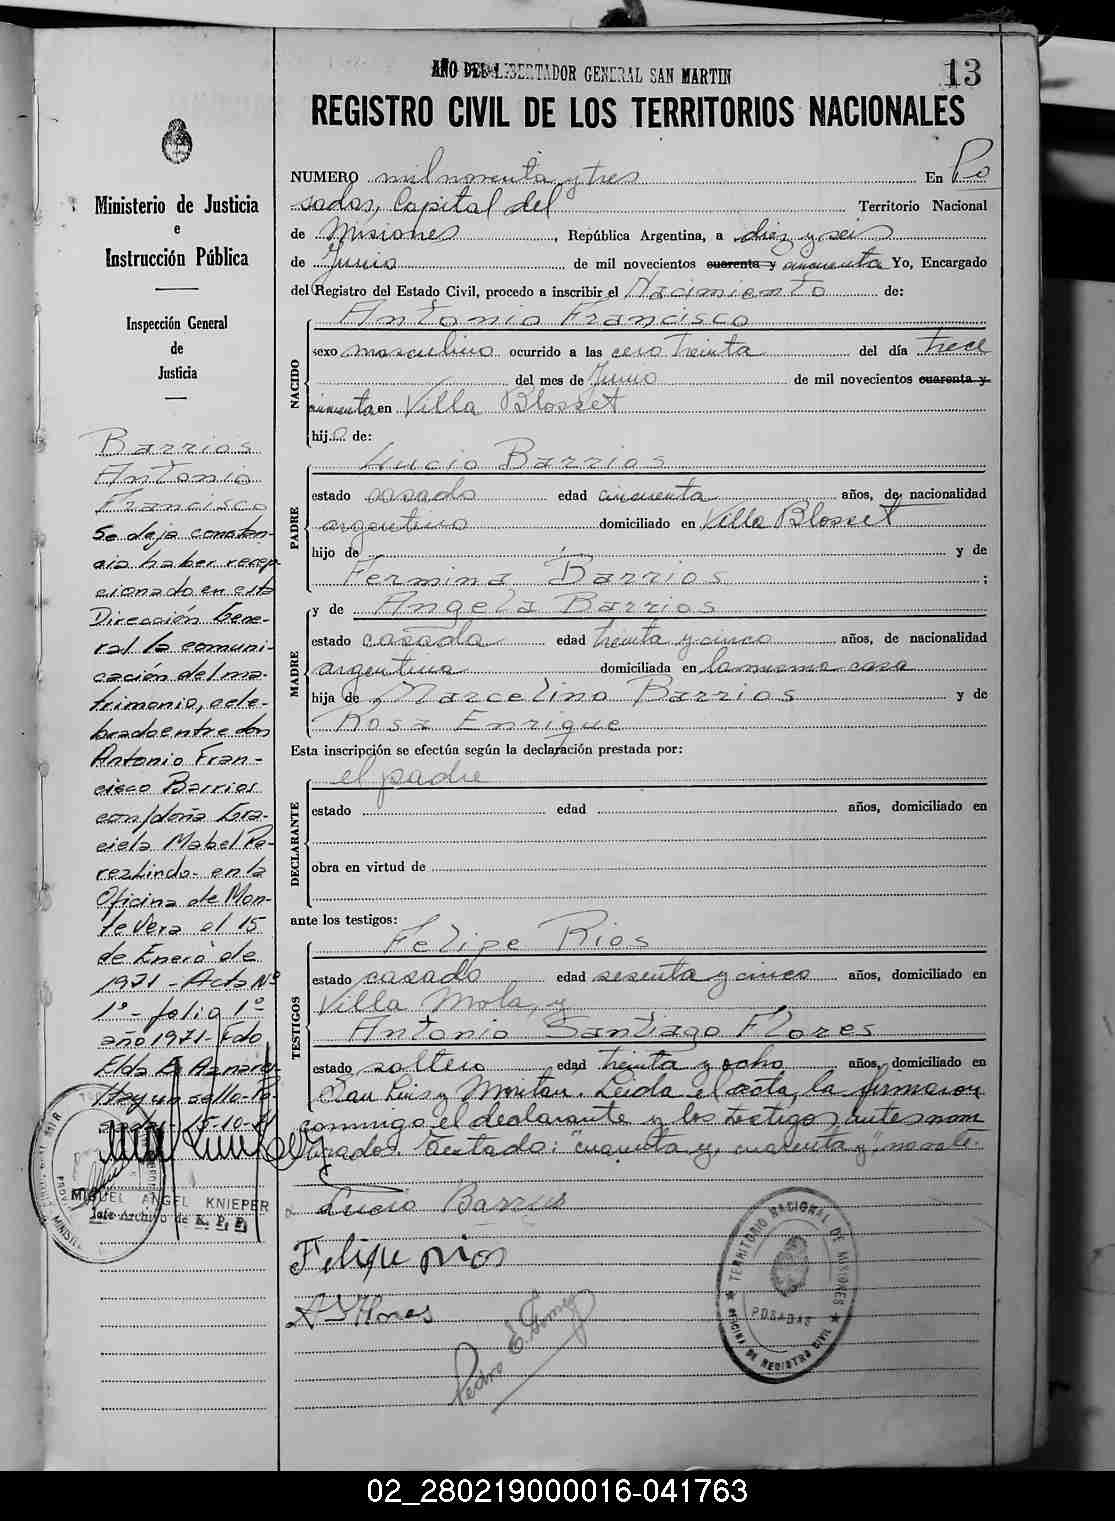 AÑO DEL LIBERTADOR GENERAL SAN MARTIN
13
REGISTRO CIVIL DE LOS TERRITORIOS NACIONALES
Ministerio de Justicia
e
Instrucción Pública
Inspección General
de
Justicia
Barrios
Antonio
Francisco
Se deja constan-
cia haber recep
cionado en esta
Dirección Gene-
ral la comuni-
cación del ma-
trimonio, cele-
brado entre don
Antonio Fran-
cisco Barrios
con doña Gra-
ciela Mabel Pe-
rezlindo- en la
Oficina de Mon-
te Vera el 15
de Enero de
1971 - Acta Nº
1º - folio 1º
año 1971- Fdo
Elda E Aznarez
Hay un sello- Po-
5-10-
MIGUEL ANGEL KNIEPER
Jefe Archivo de R. P. P.
NUMERO mil noventa y tres En Po
sadas, Capital del Territorio Nacional
de Misiones, República Argentina, a diez y seis
de Junio de mil novecientos cuarenta y cincuenta Yo, Encargado
del Registro del Estado Civil, procedo a inscribir el Nacimiento de:
NACIDO
Antonio Francisco
sexo masculino ocurrido a las cero treinta del día trece
del mes de Junio de mil novecientos cuarenta y
cincuenta en Villa Blosset
hijo de:
PADRE
Lucio Barrios
estado casado edad cincuenta años, de nacionalidad
argentino domiciliado en Villa Blosset
hijo de y de
Fermina Barrios ;
MADRE
y de Angela Barrios
estado casada edad treinta y cinco años, de nacionalidad
argentina domiciliada en la misma casa
hija de Marcelino Barrios y de
Rosa Enrique
Esta inscripción se efectúa según la declaración prestada por:
DECLARANTE
el padre
estado edad años, domiciliado en
obra en virtud de
ante los testigos:
TESTIGOS
Felipe Rios
estado casado edad sesenta y cinco años, domiciliado en
Villa Mola, y
Antonio Santiago Flores
estado soltero edad treinta y ocho años, domiciliado en
San Luis y Leida el acta, la firmaron
conmigo el declarante y los testigos antes nom
brados. Testado: "cuarenta y, cuarenta y", no vale.
Lucio Barrios
Felipe rios
A S Flores
Pedro E. Gomez
TERRITORIO NACIONAL DE MISIONES
POSADAS
OFICINA DE REGISTRO CIVIL
02_280219000016-041763